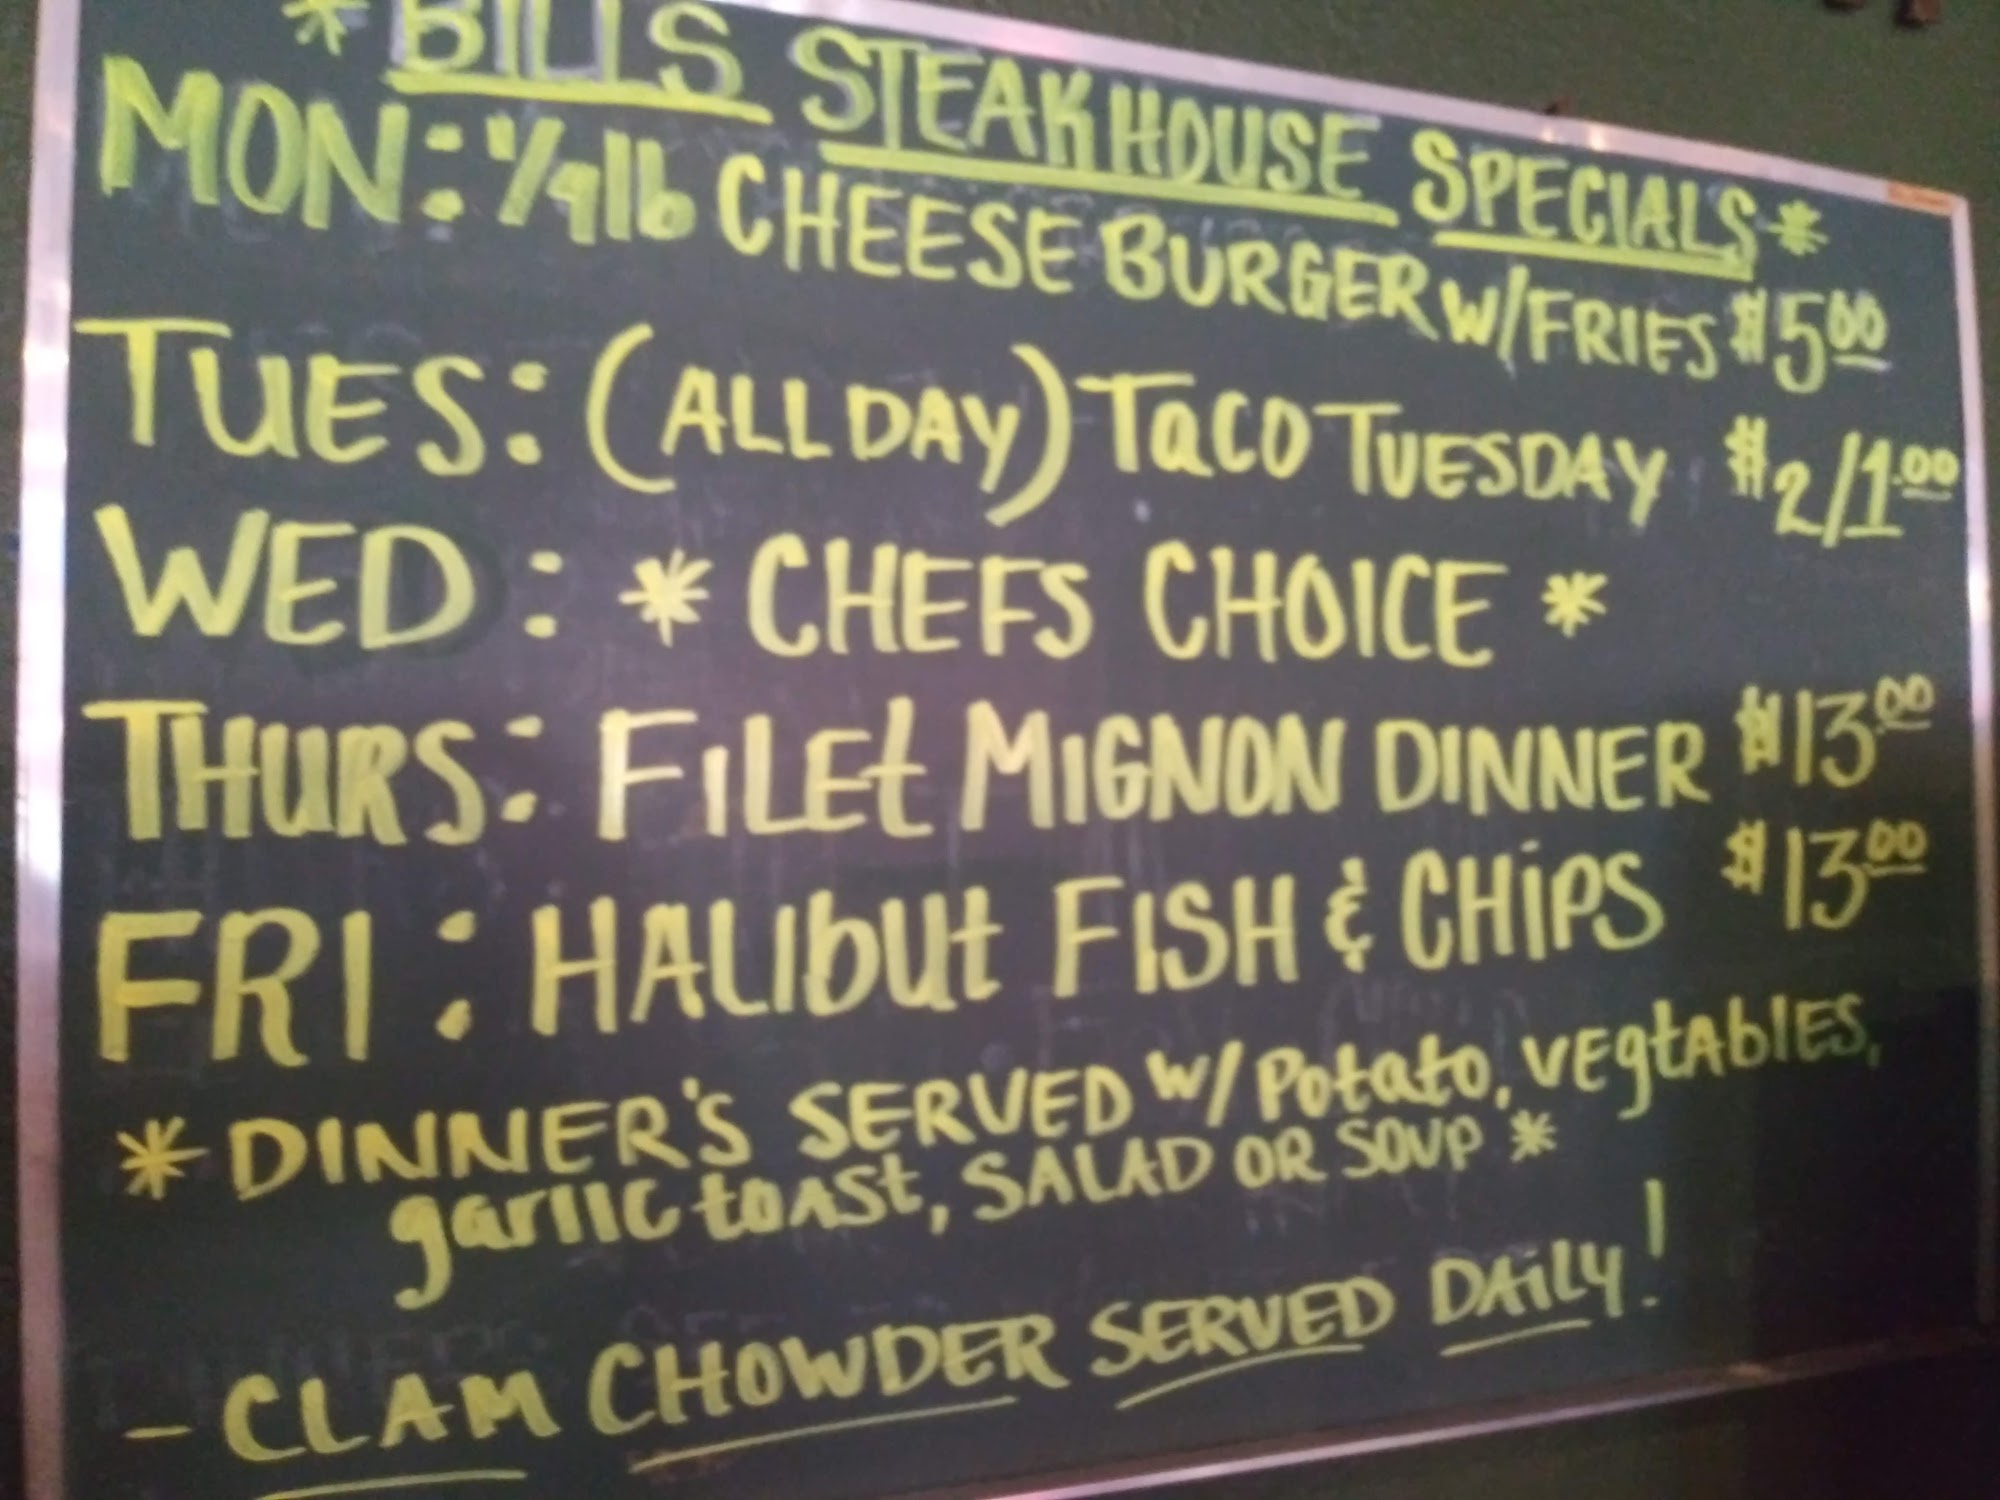 * BILLS STEAKHOUSE SPECIALS *
MON: 1/4lb CHEESE BURGER W/FRIES $5.00
TUES: (ALL DAY) TACO TUESDAY $2/1.00
WED: * CHEFS CHOICE *
THURS: FILEt MIGNON DINNER $13.00
FRI: HALIbUt FISH & CHiPS $13.00
*DINNER'S SERVED W/ Potato, VEgtAblES,
garlic toast, SALAD OR SOUP *
- CLAM CHOWDER SERVED DAiLy!